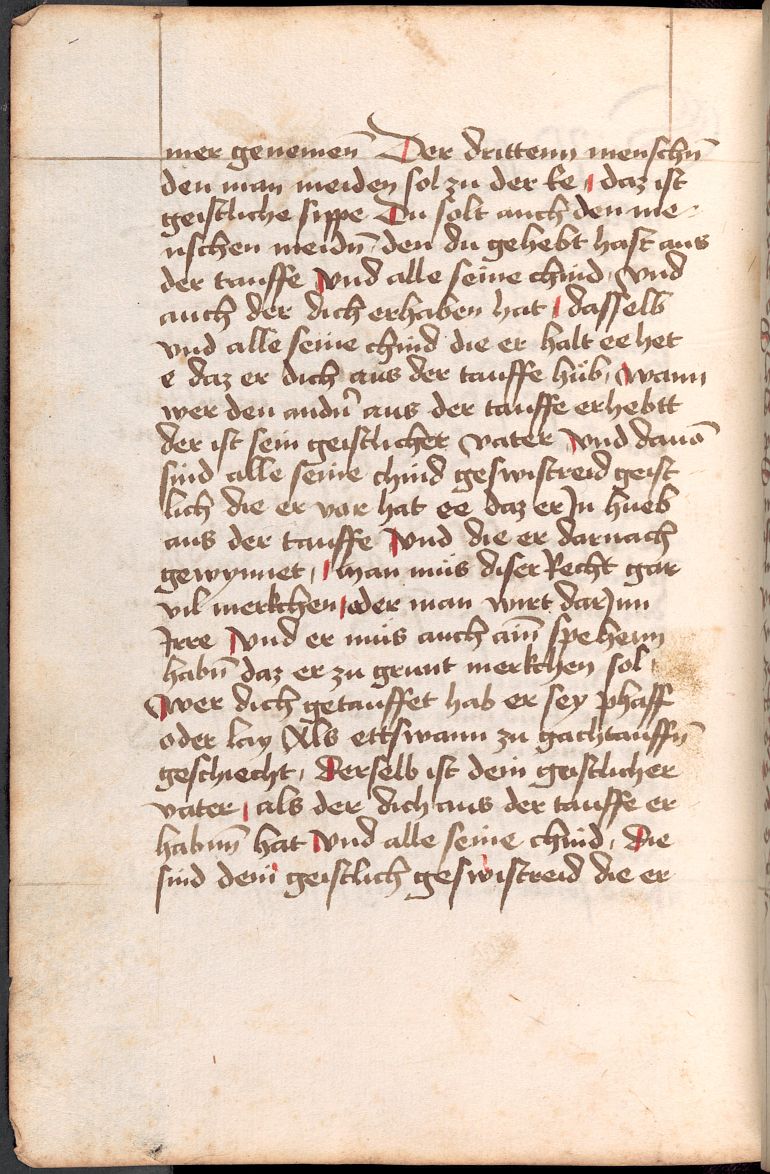 mer genemen̄ Der drittenn menschn̄
den man meiden sol zu der ke, daz ist
geistliche sippe Du solt auch den me
nschen meidn̄ den du gehebt hast aus
der tauffe vnd alle seine chind, vnd
auch der dich erhaben hat, dasselb
vnd alle seine chind die er halt ee het
e daz er dich aus der tauffe hůb, wann
wer den andn̄ aus der tauffe erhebtt
der ist sein geistlicher vater, vnd dauō
sind alle seine chind geswistreid geist
lich die er vor hat ee daz er Jn hueb
aus der tauffe vnd die er darnach
gewynnet, man můs diser Recht gar
vil merkchen, oder man wirt dar Jnn
Jrre vnd er můs auch ain̄ spehenn
habn̄ daz er zu grunt merkchen sol,
wer dich getauffet hab er sey phaff
oder lay Als ettswann zu gachtauffn̄
geschiecht, Derselb ist dein geistlicher
vater, als der dich aus der tauffe er
habnn̄ hat vnd alle seine chind, Die
sind dein geistlich geswistreid die er